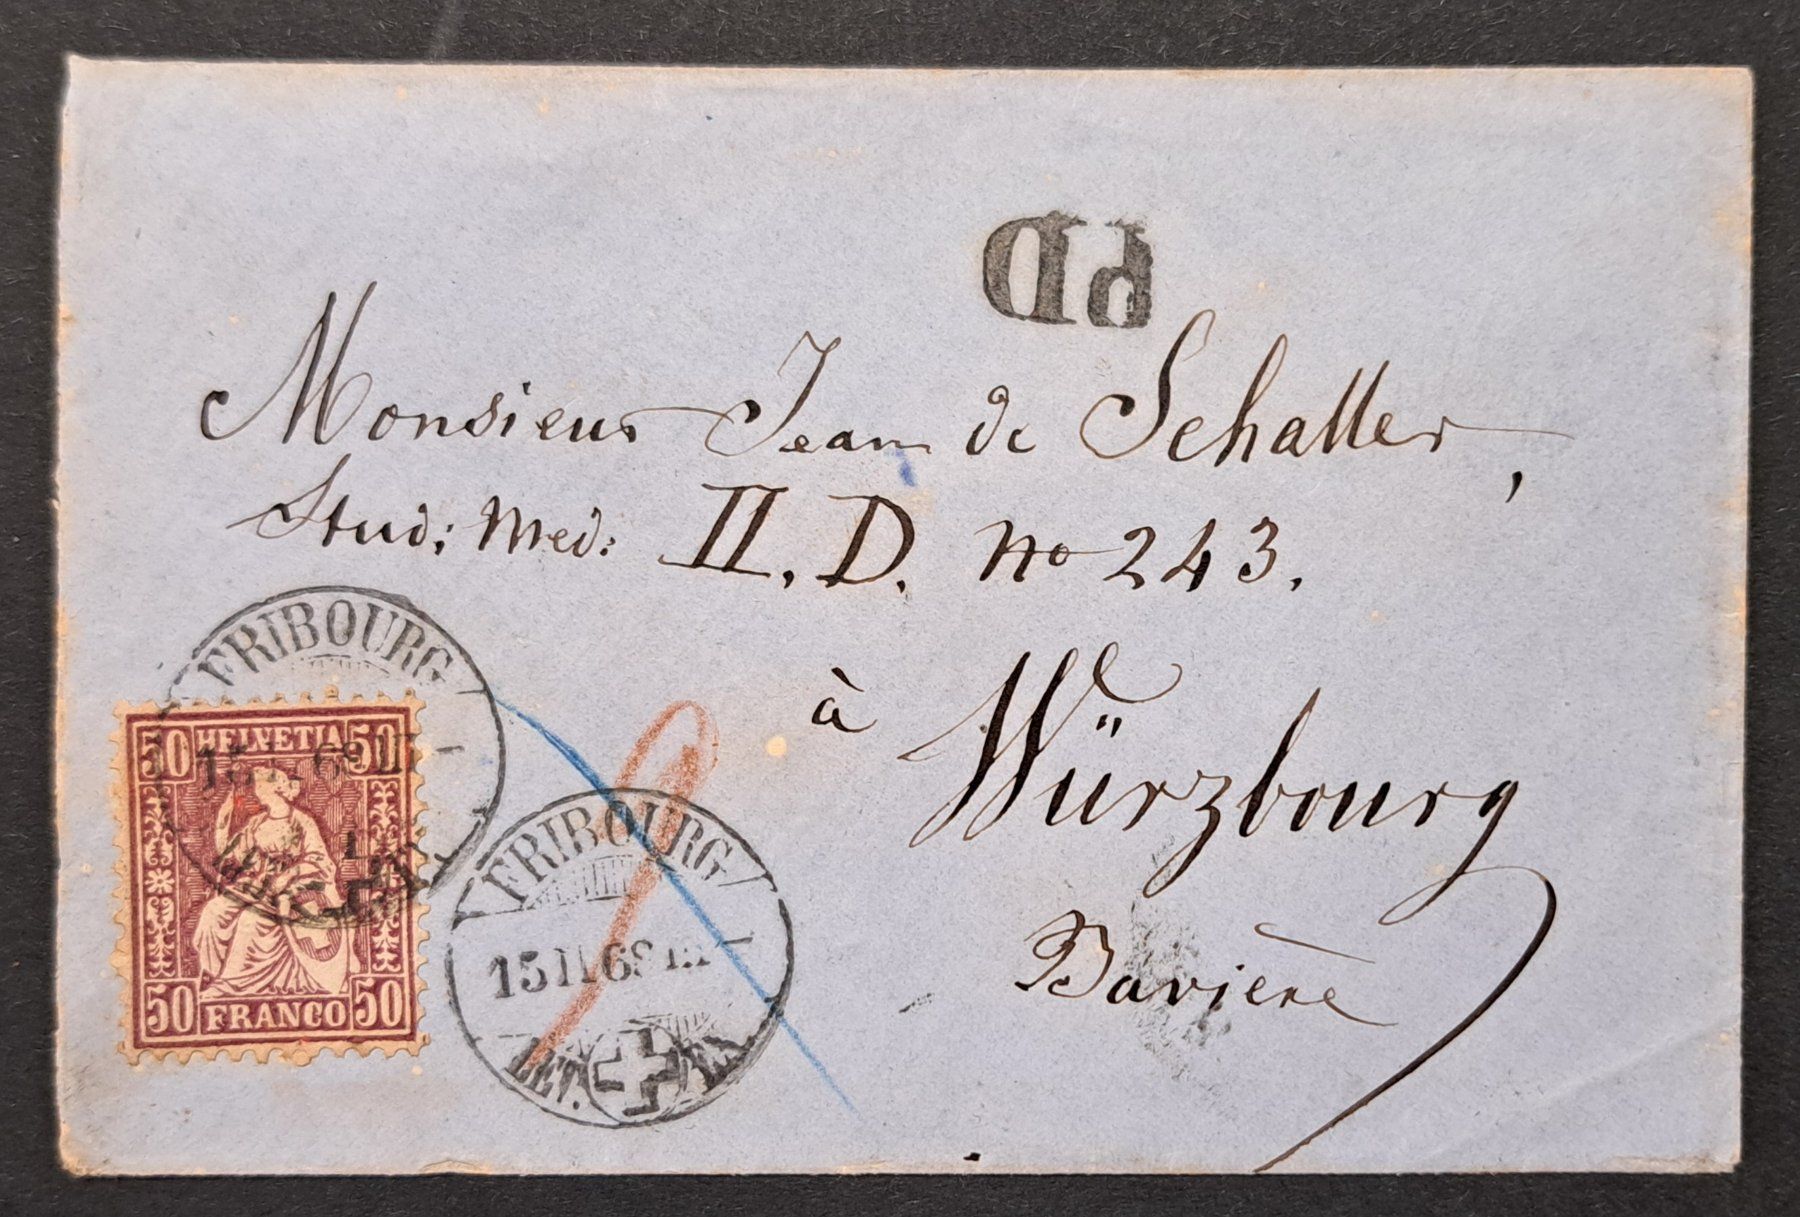 PD
Monsieur Jean de Schaller,
Stud: Med: II. D. No 243.
à Würzbourg
Bavière
FRIBOURG
15 II 69
LET. EX.
50 HELVETIA 50
50 FRANCO 50
FRIBOURG
15 II 69
LET. EX.